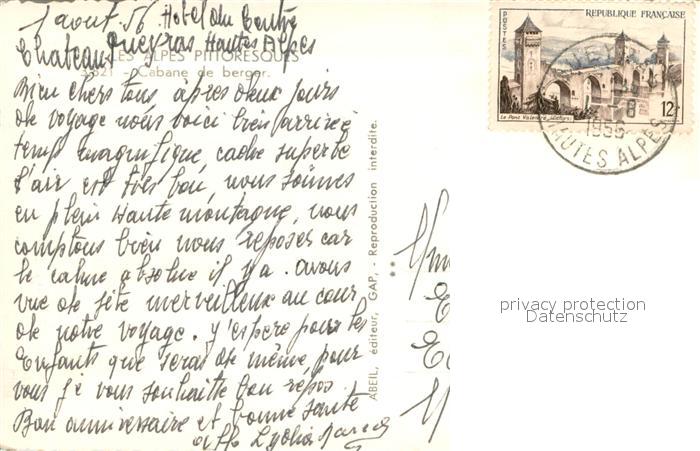 1 aout 56 Hotel du Centre
Chateau Queyras Hautes Alpes
LES ALPES PITTORESQUES
3821 - Cabane de berger.
Bien chers tous, après deux jours
de voyage nous voici bien arrivée
temp magnifique, cadre superbe
l'air est très bon, nous sômmes
en plein Haute montagne, nous
comptons bien nous reposer car
le calme absolue il y a. avons
vue de fête merveilleux au cour
de notre voyage. y'espere pour les
Enfants que seras de même pour
vous je vous souhaitte bon répos
Bon anniversaire et bonne santé
aff Lydia
ABEIL, éditeur, GAP. - Reproduction interdite.
POSTES
REPUBLIQUE FRANÇAISE
12F
Le Pont Valentré (Cahors)
1956
HAUTES ALPES
privacy protection
Datenschutz